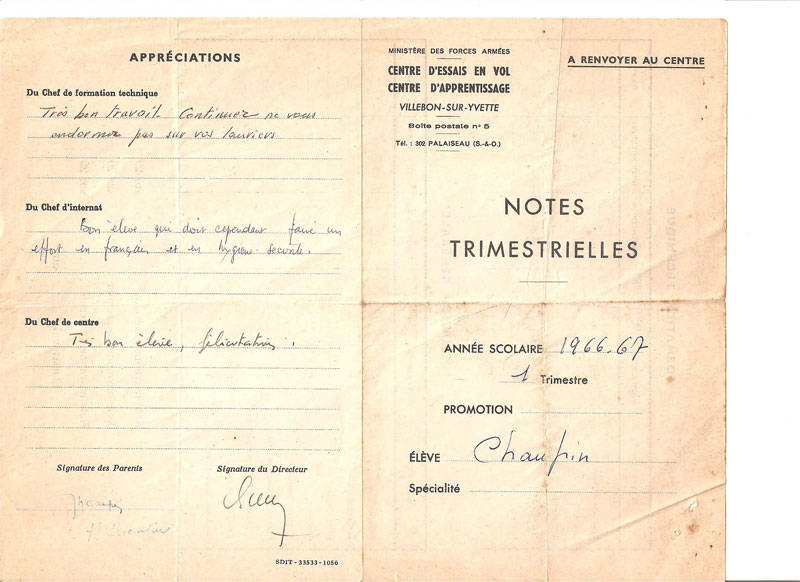 APPRÉCIATIONS
Du Chef de formation technique
Très bon travail. Continuez ne vous
endormez pas sur vos lauriers
Du Chef d'internat
Bon élève qui doit cependant faire un
effort en français et en hygiène-sécurité.
Du Chef de centre
Très bon élève, félicitations.
Signature des Parents
Signature du Directeur
SDIT-33533-1056
MINISTÈRE DES FORCES ARMÉES
CENTRE D'ESSAIS EN VOL
CENTRE D'APPRENTISSAGE
VILLEBON-SUR-YVETTE
Boîte postale n° 5
Tél. : 302 PALAISEAU (S.-&-O.)
A RENVOYER AU CENTRE
NOTES
TRIMESTRIELLES
ANNÉE SCOLAIRE 1966-67
1 Trimestre
PROMOTION
ÉLÈVE Chaupin
Spécialité